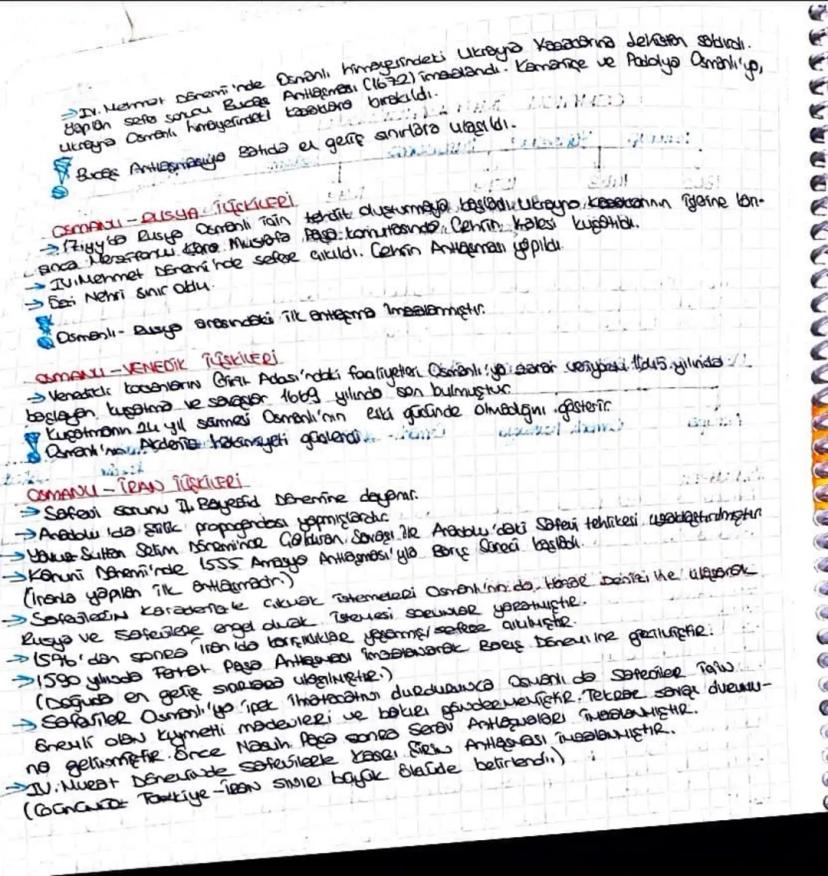 → IV. Mehmet Dönemi'nde Osmanlı himayesindeki Ukrayna Kazaklarına Lehistan saldırdı.
yapılan sefer sonucu Bucaş Antlaşması (1672) imzalandı. Kamaniçe ve Podolya Osmanlı'ya,
Ukrayna Osmanlı himayesindeki kazaklara bırakıldı.
Bucaş Antlaşmasıyla Batıda en geniş sınırlara ulaşıldı.
OSMANLI - RUSYA İLİŞKİLERİ
→ 17.yy'da Rusya Osmanlı için tehdit oluşturmaya başladı. Ukrayna kazaklarının işlerine karı-
şınca Merzifonlu Kara Mustafa Paşa komutasında Çehrin Kalesi kuşatıldı.
→ IV. Mehmet Dönemi'nde sefere çıkıldı. Çehrin Antlaşması yapıldı.
→ Özi Nehri sınır oldu.
Osmanlı - Rusya arasındaki ilk antlaşma imzalanmıştır.
OSMANLI - VENEDİK İLİŞKİLERİ
→ Venedikli korsanların Girit Adası'ndaki faaliyetleri Osmanlı'ya zarar veriyordu. 1645 yılında
başlayan kuşatma ve savaşlar 1669 yılında son bulmuştur.
Kuşatmanın 24 yıl sürmesi Osmanlı'nın eski gücünde olmadığını gösterir.
Osmanlı'nın Akdeniz hakimiyeti güçlendi.
OSMANLI - İRAN İLİŞKİLERİ
→ Safevi sorunu II. Bayezid Dönemine dayanır.
→ Anadolu'da Şiilik propagandası yapmışlardır.
→ Yavuz Sultan Selim Döneminde Çaldıran Savaşı ile Anadolu'daki Safevi tehlikesi uzaklaştırılmıştır.
→ Kanuni Dönemi'nde 1555 Amasya Antlaşması'yla Barış Süreci başladı.
(İranla yapılan ilk antlaşmadır.)
→ Safevilerin Karadenize çıkmak istemeleri Osmanlı'nın da Hazar Denizi'ne ulaşarak
Rusya ve Safevilere engel olmak istemesi sorunlar yaratmıştır.
→ 1576'dan sonra İran'da karışıklıklar yaşanmış sefere çıkılmıştır.
→ 1590 yılında Ferhat Paşa Antlaşması imzalanarak Barış Dönemine geçilmiştir.
(Doğuda en geniş sınırlara ulaşılmıştır.)
→ Safeviler Osmanlı'ya ipek ihracatını durdurunca Osmanlı da Safeviler için
önemli olan kıymetli madenleri ve bakırı göndermemiştir. Tekrar savaş durumu-
na gelinmiştir. Önce Nasuh Paşa sonra Serav Antlaşmaları imzalanmıştır.
→ IV. Murat Döneminde Safevilerle Kasrı Şirin Antlaşması imzalanmıştır.
(Günümüz Türkiye - İran sınırı büyük ölçüde belirlendi.)